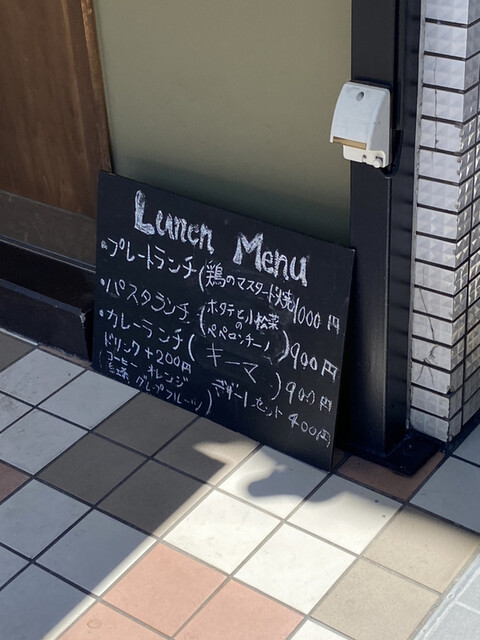 Lunch Menu
・プレートランチ(鶏のマスタード焼)1000円
・パスタランチ(ホタテと小松菜のペペロンチーノ)900円
・カレーランチ(キーマ)900円
ドリンク+200円 デザートセット400円
コーヒー オレンジ
紅茶 グレープフルーツ)